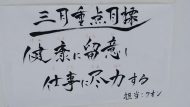 三月重点目標
健康に留意し
仕事に尽力する
担当:クオン